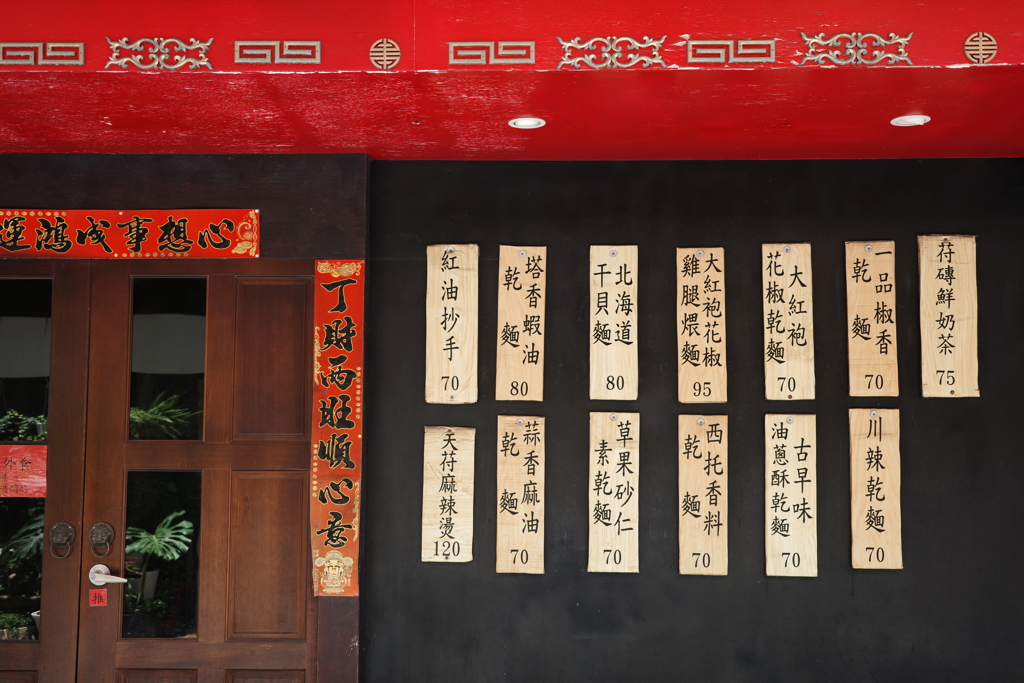 運鴻成事想心
丁財兩旺順心意
外食
推
紅油抄手
70
塔香蝦油
乾麵
80
北海道
干貝麵
80
大紅袍花椒
雞腿煨麵
95
大紅袍
花椒乾麵
70
一品椒香
乾麵
70
荇磚鮮奶茶
75
天荇麻辣燙
120
蒜香麻油
乾麵
70
草果砂仁
素乾麵
70
西托香料
乾麵
70
古早味
油蔥酥乾麵
70
川辣乾麵
70